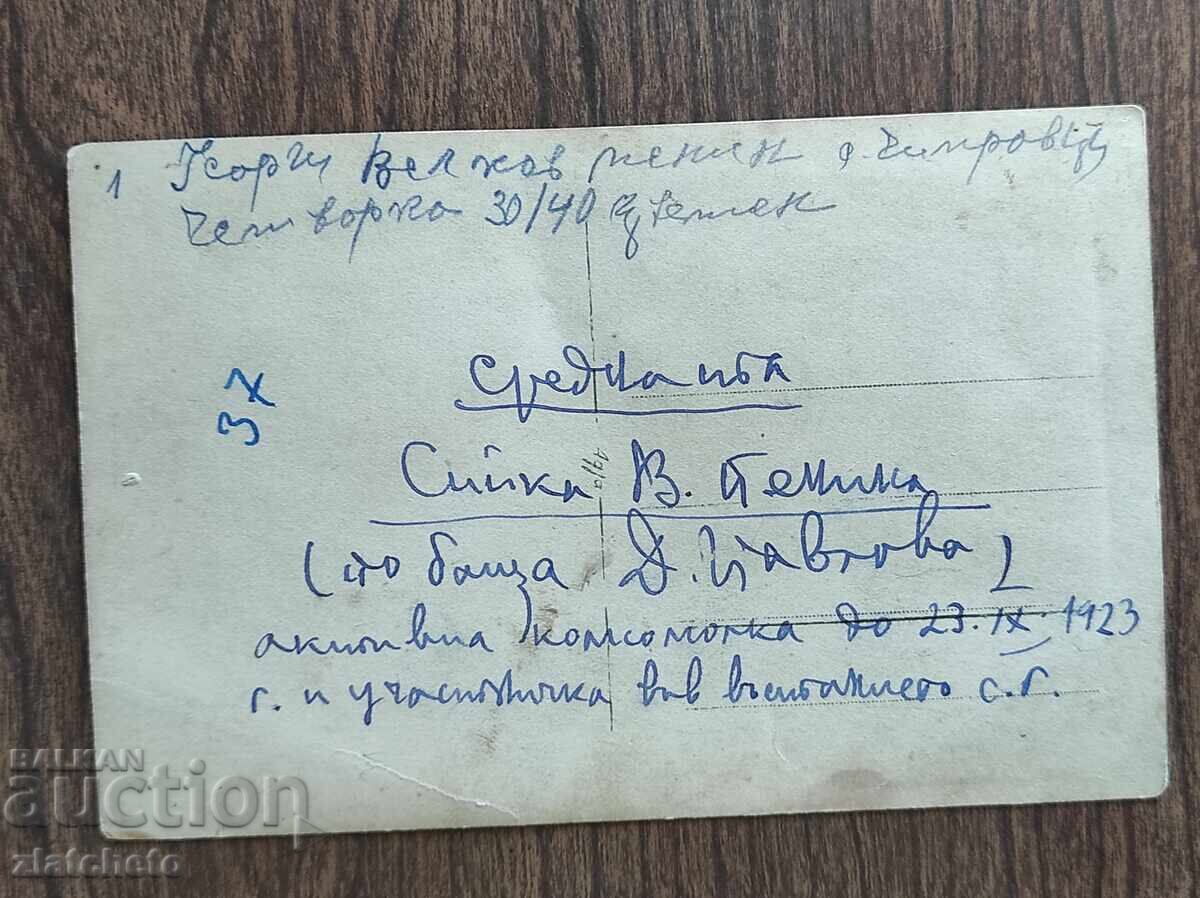 1 Георги Велков пенин о. Чипровци
Четворка 30/40
3х
Средната
Сийка В. Пенина
(по баща Д. Цавкова)
активна комсомолка до 23. IX. 1923
г. и участничка във въстанието с.г.
BALKAN
auction
zlatcheto